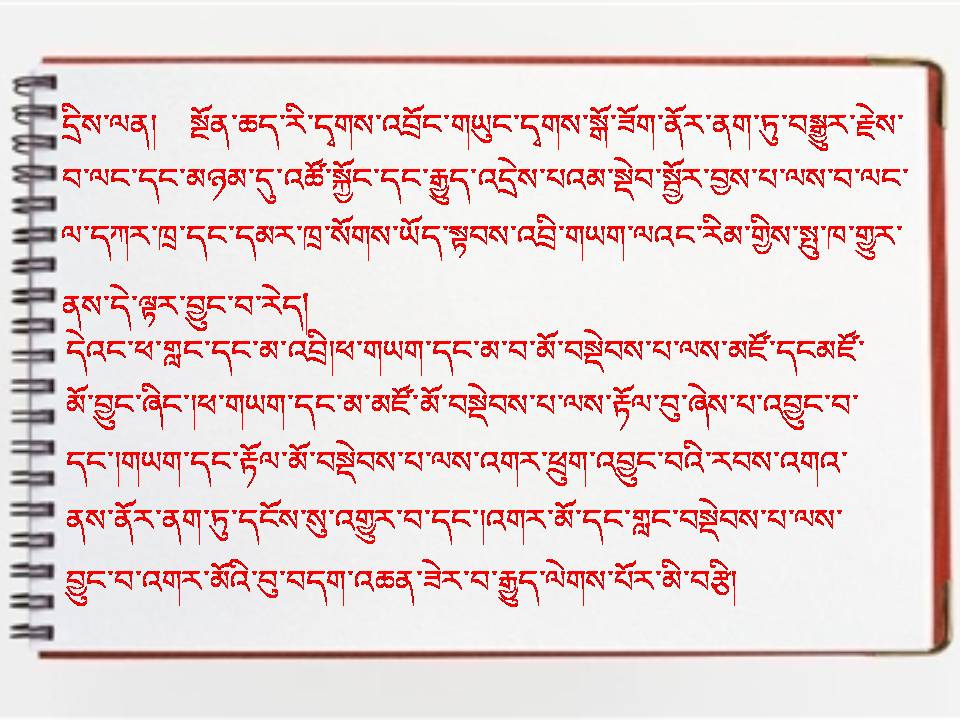 དྲིས་ལན། སྔོན་ཆད་རི་དྭགས་འབྲོང་གཡུང་དྭགས་སྒོ་ཟོག་ནོར་ནག་ཏུ་བསྒྱུར་རྗེས་
བ་ལང་དང་མཉམ་དུ་འཚོ་སྐྱོང་དང་རྒྱུད་འདྲེས་པའམ་སྡེབ་སྦྱོར་བྱས་པ་ལས་བ་ལང་
ལ་དཀར་ཁྲ་དང་དམར་ཁྲ་སོགས་ཡོད་སྟབས་འབྲི་གཡག་ལའང་རིམ་གྱིས་སྤུ་ཁ་གྱུར་
ནས་དེ་ལྟར་བྱུང་བ་རེད།
དེའང་ཕ་གླང་དང་མ་འབྲི།ཕ་གཡག་དང་མ་བ་མོ་བསྡེབས་པ་ལས་མཛོ་དངམཛོ་
མོ་བྱུང་ཞིང་།ཕ་གཡག་དང་མ་མཛོ་མོ་བསྡེབས་པ་ལས་རྟོལ་བུ་ཞེས་པ་འབྱུང་བ་
དང་།གཡག་དང་རྟོལ་མོ་བསྡེབས་པ་ལས་འགར་ཕྲུག་འབྱུང་བའི་རབས་འགའ་
ནས་ནོར་ནག་ཏུ་དངོས་སུ་འགྱུར་བ་དང་།འགར་མོ་དང་གླང་བསྡེབས་པ་ལས་
བྱུང་བ་འགར་མོའི་བུ་བདག་འཆན་ཟེར་བ་རྒྱུད་ལེགས་པོར་མི་བརྩི།